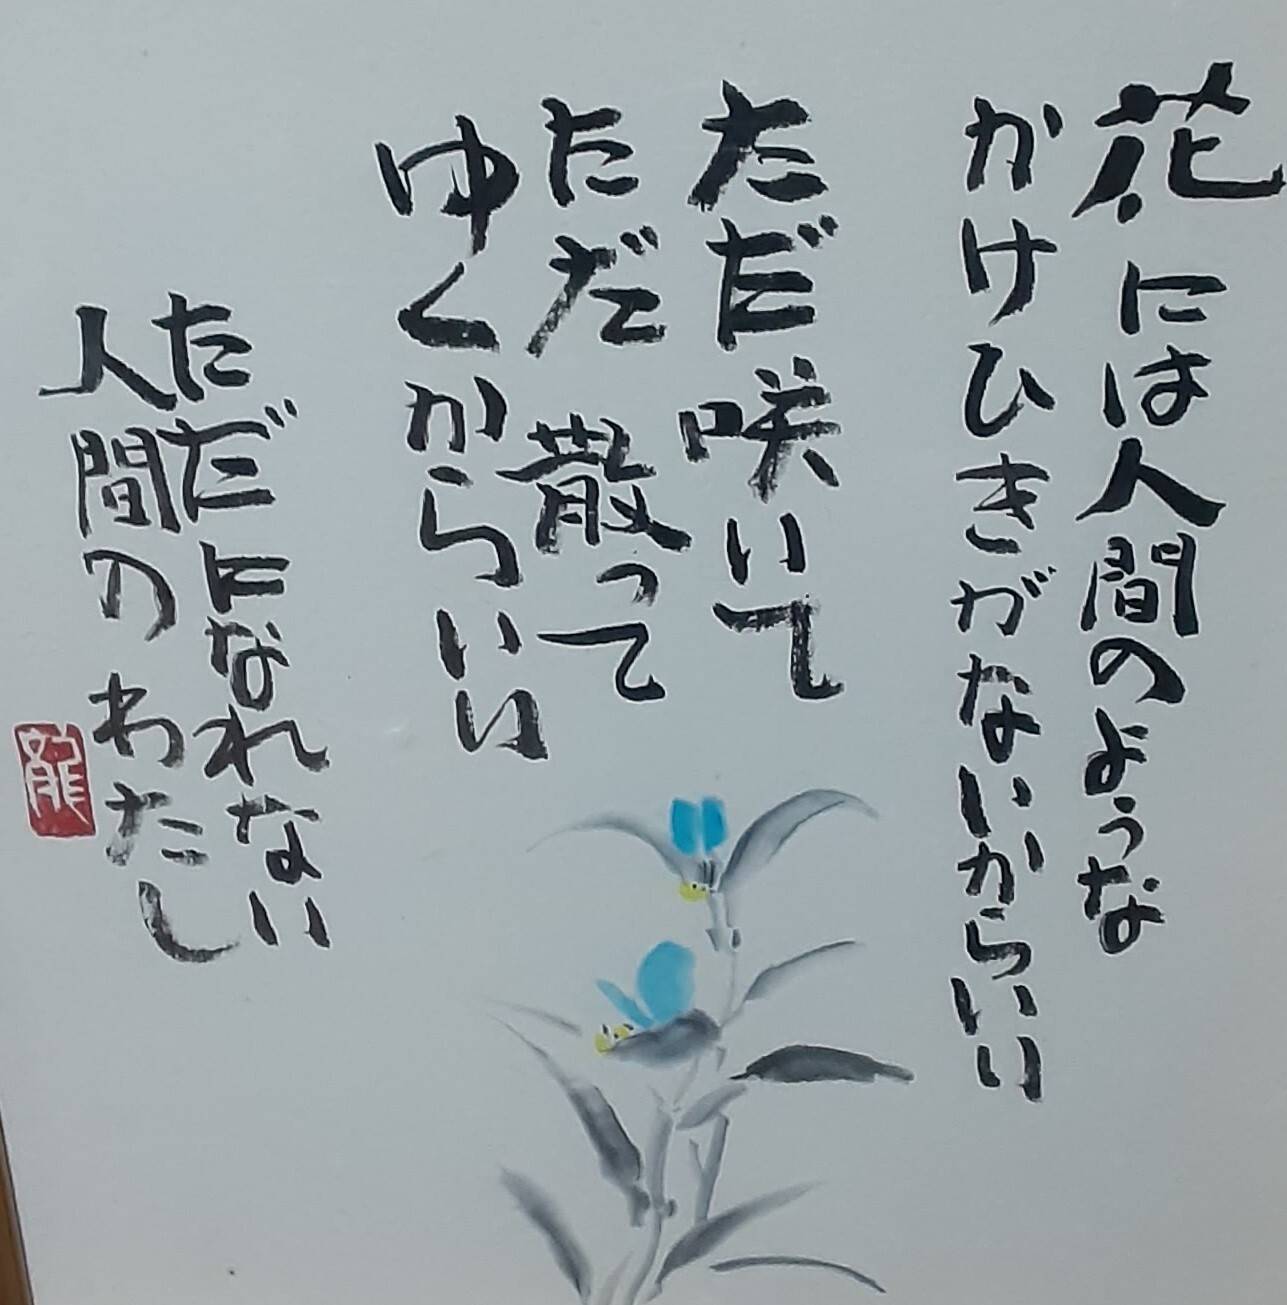 花には人間のような
かけひきがないからいい
ただ咲いて
ただ散って
ゆくからいい
ただになれない
人間のわたし
龍